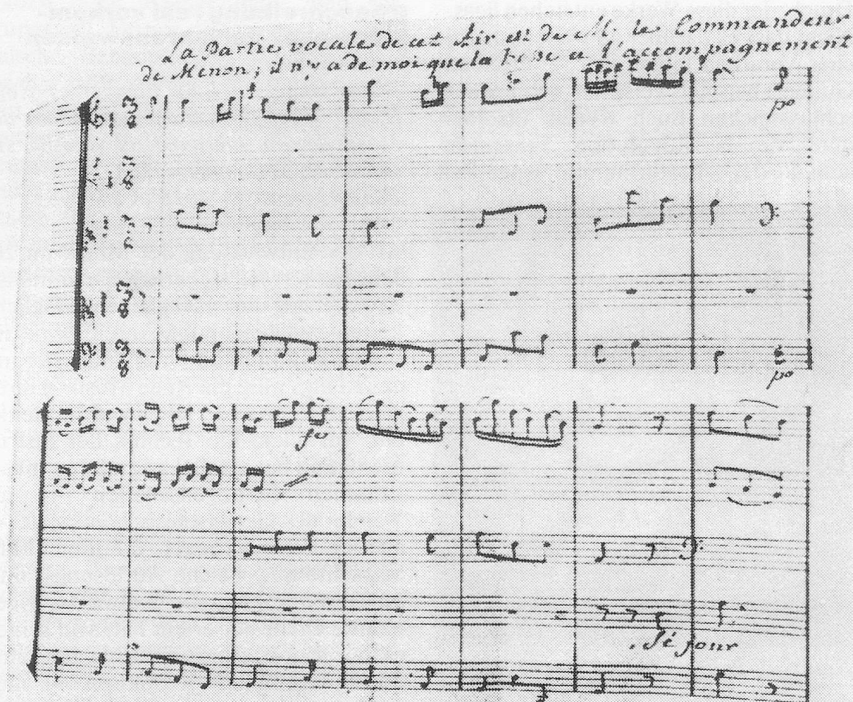 La Partie vocale de cet Air est de M. le Commandeur
de Menon; il n'y a de moi que la basse et l'accompagnement
po
po
fo
Séjour